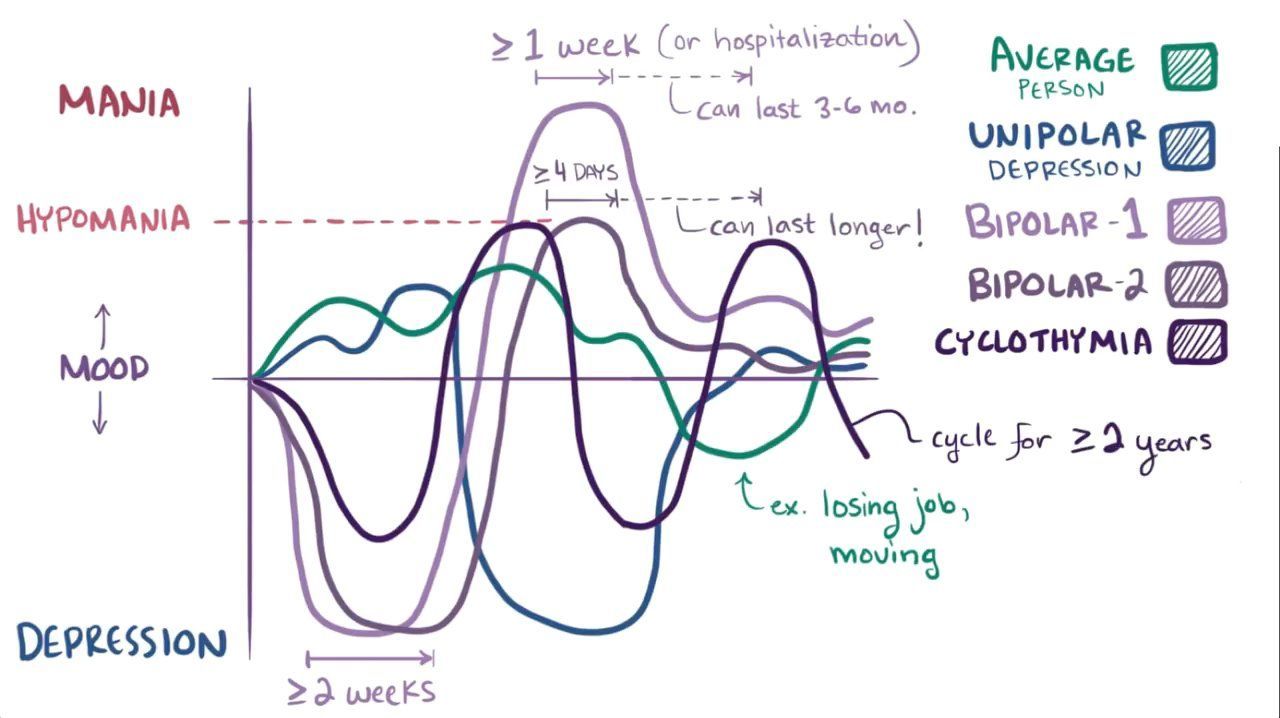 ≥ 1 week (or hospitalization)
can last 3-6 mo.
MANIA
≥ 4 DAYS
HYPOMANIA
can last longer!
↑
MOOD
↓
DEPRESSION
≥ 2 weeks
AVERAGE
PERSON
UNIPOLAR
DEPRESSION
BIPOLAR-1
BIPOLAR-2
CYCLOTHYMIA
cycle for ≥ 2 years
ex. losing job,
moving